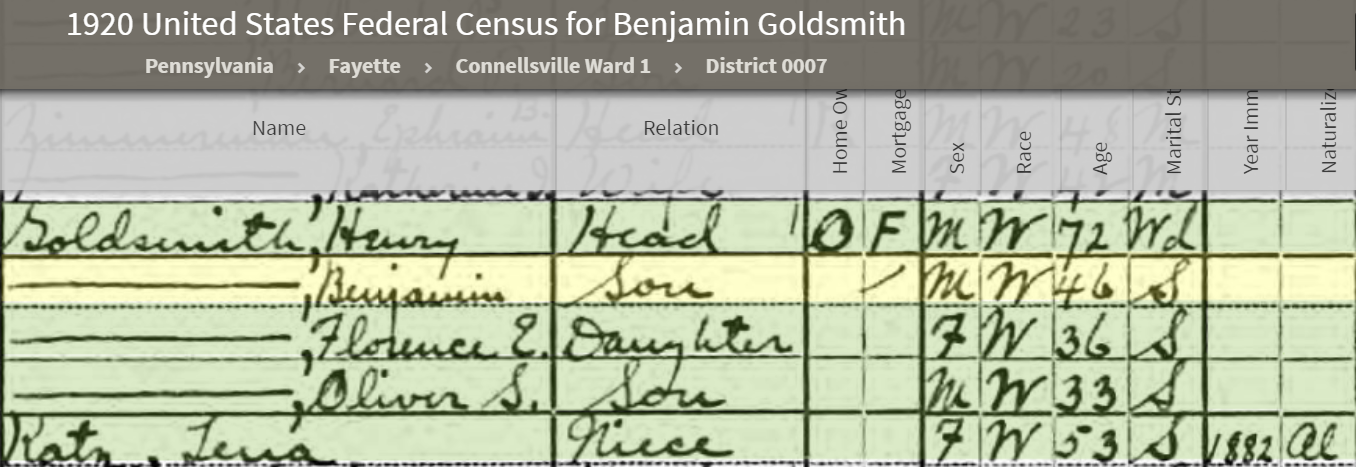 1920 United States Federal Census for Benjamin Goldsmith
Pennsylvania > Fayette > Connellsville Ward 1 > District 0007
Name Relation Home Ow Mortgage Sex Race Age Marital St Year Imm Naturaliz
Zimmerman, Ephraim B. Head M W 48 M
Katherine Wife F W M
Goldsmith, Henry Head 1 O F M W 72 Wd
———, Benjamin Son / M W 46 S
———, Florence E. Daughter F W 36 S
———, Oliver S. Son M W 33 S
Katz, Lena Niece F W 53 S 1882 Al